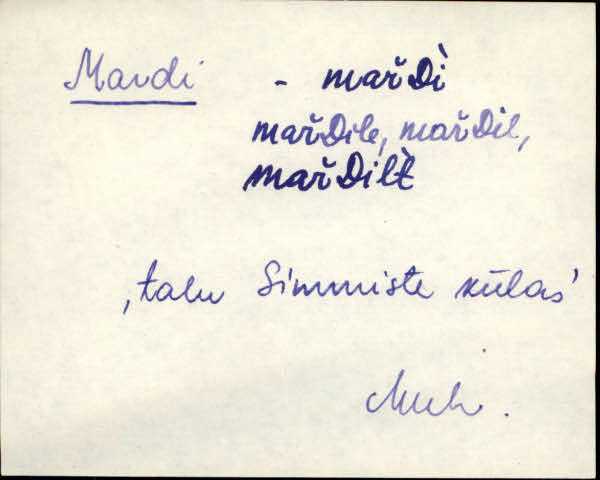 Mardi - mařDì
mařDile, mařDil,
mařDilt̀
‚talu Simmiste külas’
Muh.